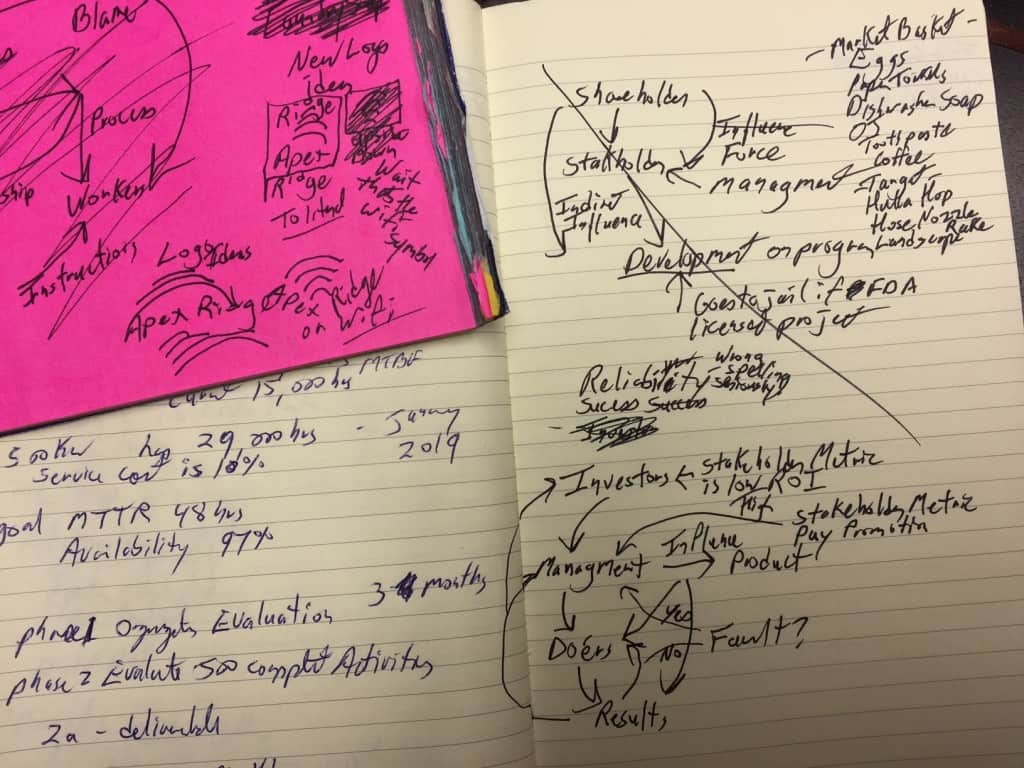 Blame
Process
ship
Worker
Instructions
New Logo
iden
Ridge
Apex
Ridge
To Intend
Wait
thats the
wifi
symbol
Logo Ideas
Apex Ridge
Apex Ridge
on Wifi
15,000 hrs MTBF
500 KW hop 29,000 hrs - January
2019
Service cost is 10%
goal MTTR 48 hrs
Availability 97%
3- months
phase 1 Organization Evaluation
phase 2 Evaluate 500 complet Activities
2a - deliverable
- Market Basket -
Eggs
Paper Towels
Dishwasher Soap
OJ
Toothpaste
Coffee
- Target
Hulla Hop
Hose Nozzle
Landscape Rake
Shareholder
Influence
Force
Stakholder
Managment
Indirect
Influence
Development on program
Goes to jail if FDA
licensed project
Reliability
wrong
spelling
seriously
Sucess Success
Investors
Stakeholder Metric
is low ROI
Hif
Stakeholder Metric
Pay Promotion
Managment
Influence
Product
Yes
Doers
No
Fault?
Results